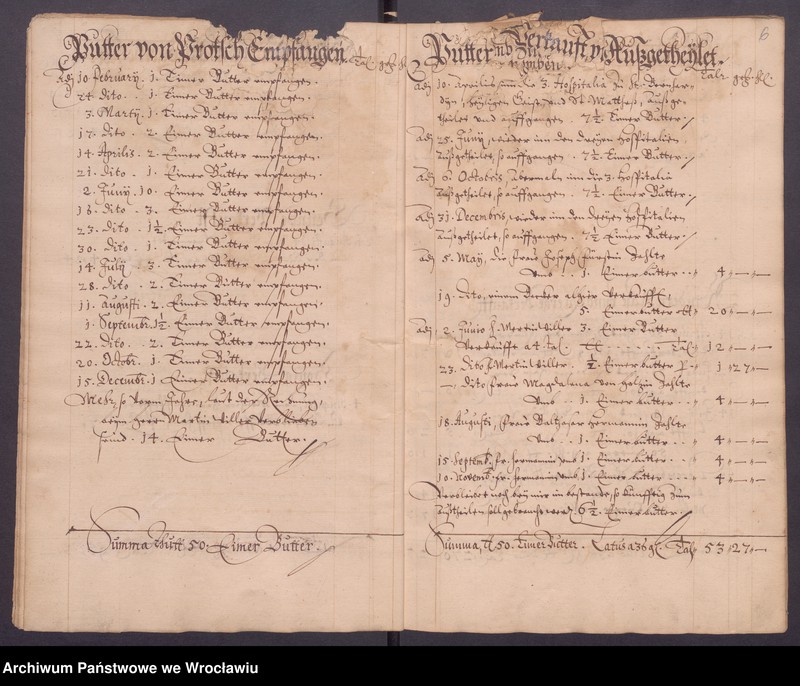 Putter von Protsch Empfangen.
Adj 10 February. 1. Eimer Butter empfangen.
24 dito . . 1. Eimer Butter empfangen.
3. Marty. 1. Eimer Butter empfangen.
17. dito . 2. Eimer Butter empfangen.
14. Aprilis. 2. Eimer Butter empfangen.
21. dito . 1. Eimer Butter empfangen.
2. Juny. 10. Eimer Butter empfangen.
16. dito . 3. Eimer Butter empfangen.
23. dito . 1½. Eimer Butter empfangen.
30. dito . 1. Eimer Butter empfangen.
14. July . 3. Eimer Butter empfangen.
28. dito . 2. Eimer Butter empfangen.
11. Augusti. 2. Eimer Butter empfangen.
1. Septembr. 1½. Eimer Butter empfangen.
22. dito . 2. Eimer Butter empfangen.
20. Octobr. 1. Eimer Butter empfangen.
15. Decembr. 1 Eimer Butter empfangen.
Mehr, so vorm Jahre, laut der Rendung,
beym Herrn Martin Viller verblieben
seind . 14. Eimer Butter.
Summa 50. Eimer Butter.
6
Putter Verkaufft Außgetheylet.
Adj 10. Aprilis 3. Hospitalia zu St. Bernhar-
dyn, heyligen Geist, und St. Matthes, außge-
theilet und auffgangen . 7½. Eimer Butter.
Adj 25. Juny, wieder inn den dreyen Hospitalien
außgetheilet, so auffgangen . 7½. Eimer Butter.
Adj 6. Octobris, abermeln inn die 3. Hospitalia
außgetheilet, so auffgangen . 7½. Eimer Butter.
Adj 31. Decembris, wieder inn den dreyen Hospitalien
außgetheilet, so auffgangen . 7½ Eimer Butter.
Adj 5. May, die fraw Joseph zahlte
umb . . 1. Eimer butter . . 4 " — " —
19. dito, einem verkaufft,
5. Eimer butter 20 " — " —
Adj 2. Junio H. Martin Viller 3. Eimer Butter
verkaufft a 4 tal. 12 " — " —
23. dito H. Martin Viller. ½. Eimer butter 1 " 27 " —
— dito, fraw Magdalena von zahlte
umb . . 1. Eimer butter . . 4 " — " —
18. Augusti, fraw Balthasar Hermannin zahlte
umb . . 1. Eimer butter . . 4 " — " —
15. Septemb. fr. Hermannin umb 1. Eimer butter . . 4 " — " —
10. Novemb. fr. Hermannin umb 1. Eimer butter . . . 4 " — " —
Verbleibet noch bey mir im bestande, so künfftig zum
außtheilen soll gebraucht werd. 6½. Eimer butter.
Summa, 50. Eimer Butter. Latus a 36 gl. Tal. 53 " 27 " —
Archiwum Państwowe we Wrocławiu